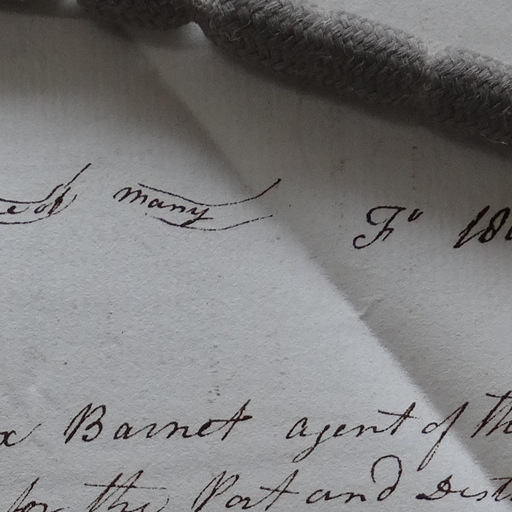 of many
Fº 18
x Barnet agent of th
for the Port and Dist